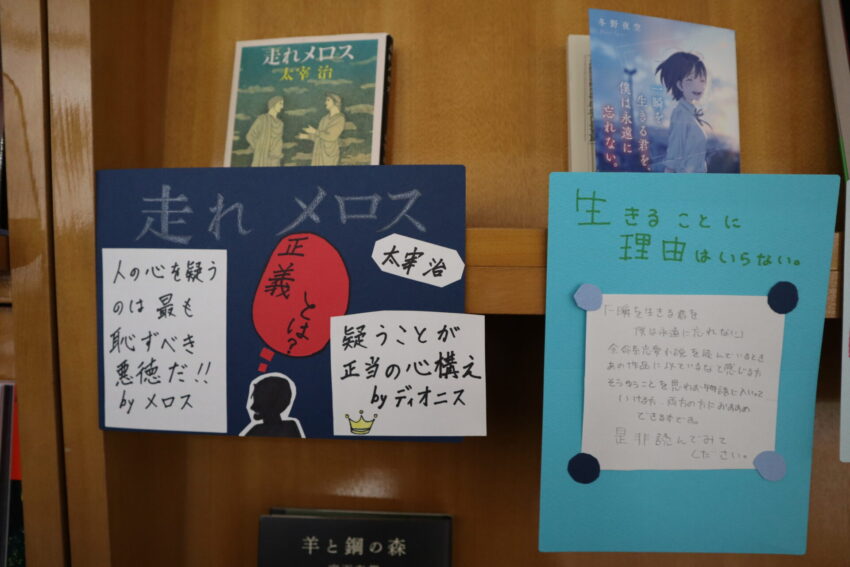 走れメロス
太宰 治
冬野夜空
一瞬を
生きる君を、
僕は永遠に
忘れない。
走れ メロス
人の心を疑う
のは 最も
恥ずべき
悪徳だ!!
by メロス
正義
とは?
太宰 治
疑うことが
正当の心構え
by ディオニス
生きることに
理由はいらない。
「一瞬を生きる君を
僕は永遠に忘れない」
余命系恋愛小説を読んでいるとき
あの作品に似ているなと感じる方
できるです。
是非読んでみて
ください。
羊と鋼の森